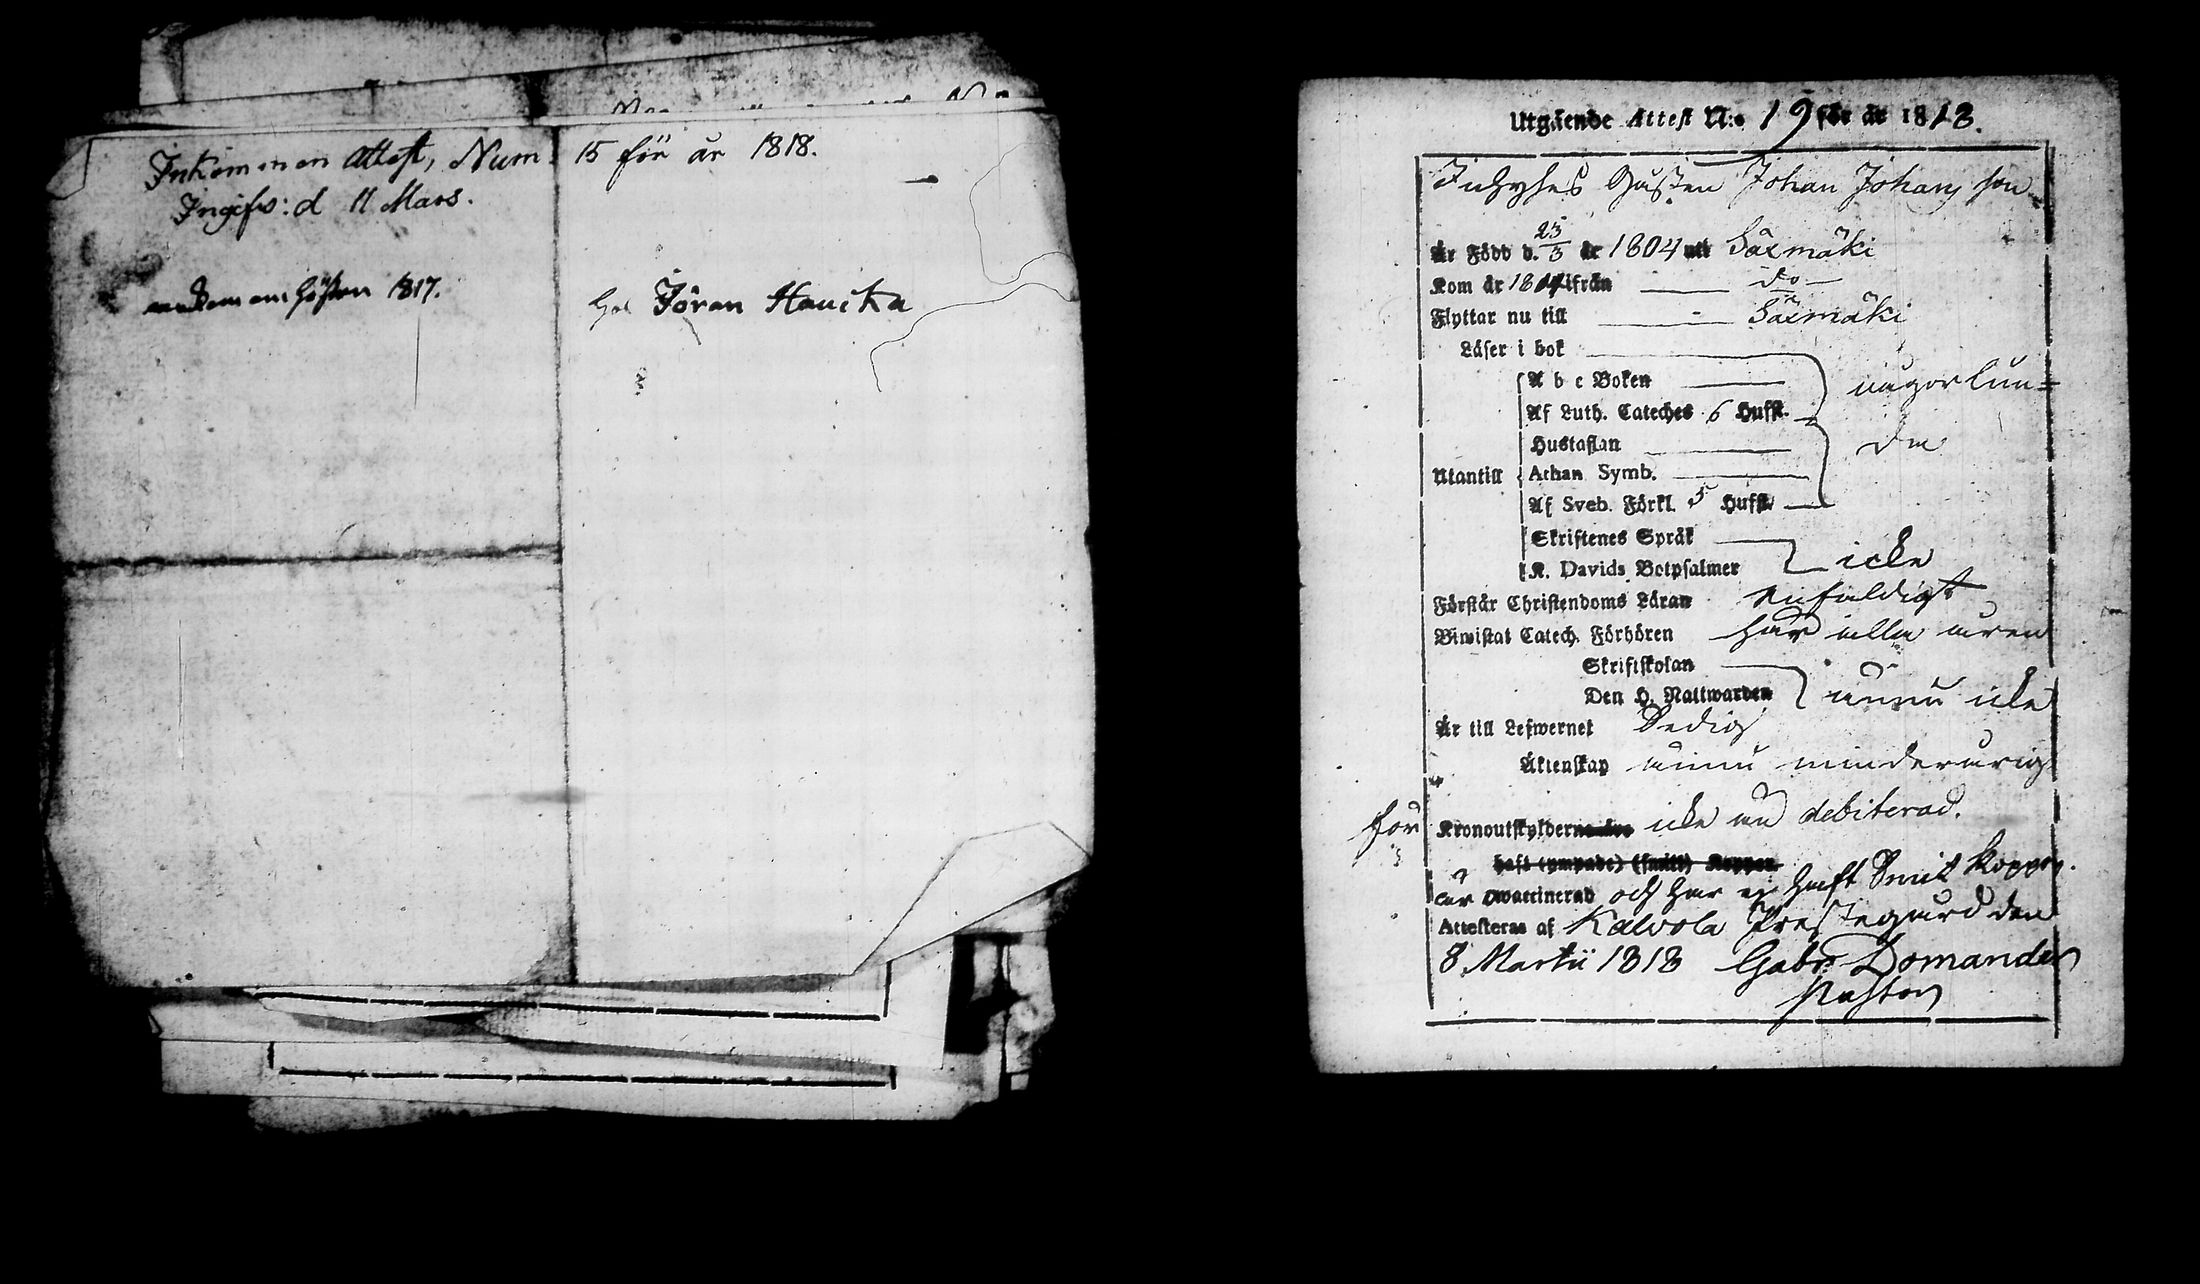 Inkommen Attest, Num: 15 för år 1818.
Ingifv: d 11 Mars.
ankom om hösten 1817.
hos Jöran Hauika
Utgående Attest N:o 19 för år 1818.
Gossen Johan Johans son
Är Född d. 23/3 år 1804 uti Säxmäki
Kom år 1804 ifrån do
Flyttar nu till Säxmäki
Läser i bok
A b c Boken någorlun=
Af Luth. Cateches 6 Hufst.
Hustaflan da
Utantill Athan Symb.
Af Sveb. Förkl. 5 Hufst.
Skriftenes Språk
K. Davids Botpsalmer icke
Förstår Christendoms Läran enfaldigt
Biwistat Catech. Förhören har alla åren
Skriftskolan
Den H. Nattwarden ännu icke
Är till Lefwernet Sedig
Äktenskap ännu minderårig
för Kronoutskylderne äro icke än debiterad.
haft (ympade) (smitt) Koppor
är wattinerad och har ej haft Smit koppor.
Attesteras af Kalvola Prestegård den
8 Martii 1818 Gabr. Domander
Pastor